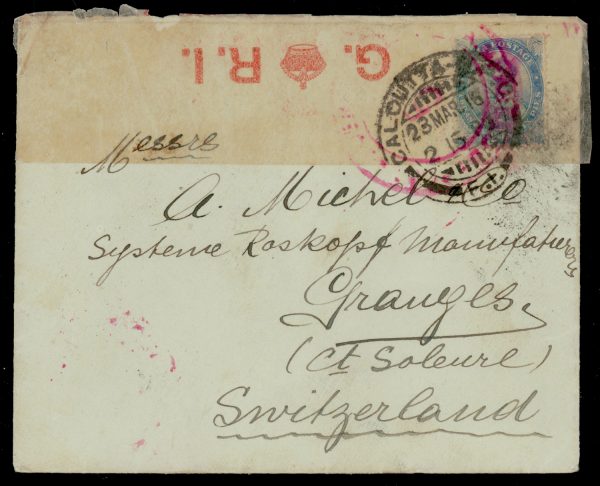 G. R.I.
POSTAG
CALCUTTA
23 MAR. 16
2 15
Messrs
A. Michel & Co
Systeme Roskopf Manufacturers
Granges.
(Ct Soleure)
Switzerland